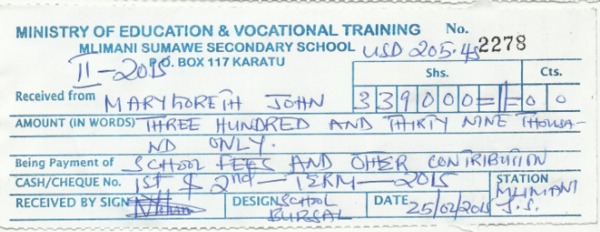 MINISTRY OF EDUCATION & VOCATIONAL TRAINING No.
MLIMANI SUMAWE SECONDARY SCHOOL USD 205.45 2278
II - 2015 P.O. BOX 117 KARATU
Shs. Cts.
Received from MARYGORETH JOHN 339000=/=00
AMOUNT (IN WORDS) THREE HUNDRED AND THIRTY NINE THOUSA-
ND ONLY.
Being Payment of SCHOOL FEES AND OTHER CONTRIBUTION
CASH/CHEQUE No. 1st & 2nd - TERM - 2015 STATION
RECEIVED BY SIGN DESIGN SCHOOL BURSAL DATE 25/02/2015 MLIMANI S.S.